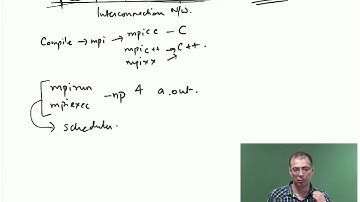 Interconnection N/w.
Compile → mpi → mpicc – C
mpic++ → C++.
mpixx
mpirun
mpiexec
–np 4 a.out
→ scheduler.